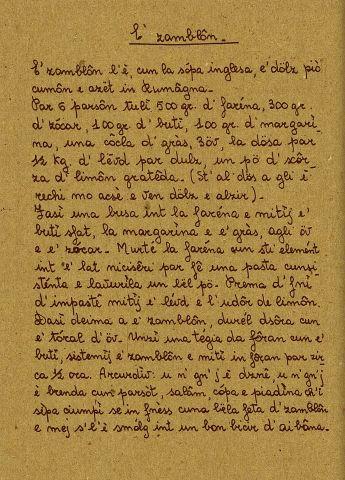 E' zamblôn.
E' zamblôn l'è, cun la sópa inglesa, e' dölz piò
cumôn e arét in Rumâgna.
Par 6 parsôn tulì 500 gr. d' faréna, 300 gr.
d' zócar, 100 gr. d' buti, 100 gr. d' margari-
na, una còcla d' gràs, 3 öv, la dösa par
½ Kg. d' lévd par dulz, un pö d' scôr-
za d' limôn gratêda. (St' al dös a gli è
rechi mo acsè e ven dölz e alzir).
Fasì una busa int la faréna e mitìj e'
buti sfat, la margarina e e' gràs, agli öv
e e' zócar. Murtè la faréna cun sti elemént
int e' lat nicisêri par fê una pasta cunsi-
sténta e lavurila un bël pö. Prema d' fnì
d' impastê mitìj e' lévd e l'udôr de limôn.
Dasì deima a e' zamblôn, durél dsôra cun
e' tóral d' öv. Unzì una tégia da fôran cun e'
buti, sistemìj e' zamblôn e mitì in fôran par zirca
ca ½ ora. Arcurdiv: u n' gn' j è dsnê, u n' gn' j
è brenda cun parsòt, salâm, cópa e piadina ch'i
sépa ciumpì se in fnéss cuna bëla feta d' zamblôn
e mej s' l'è smólg int un bon bicir d' aibâna.